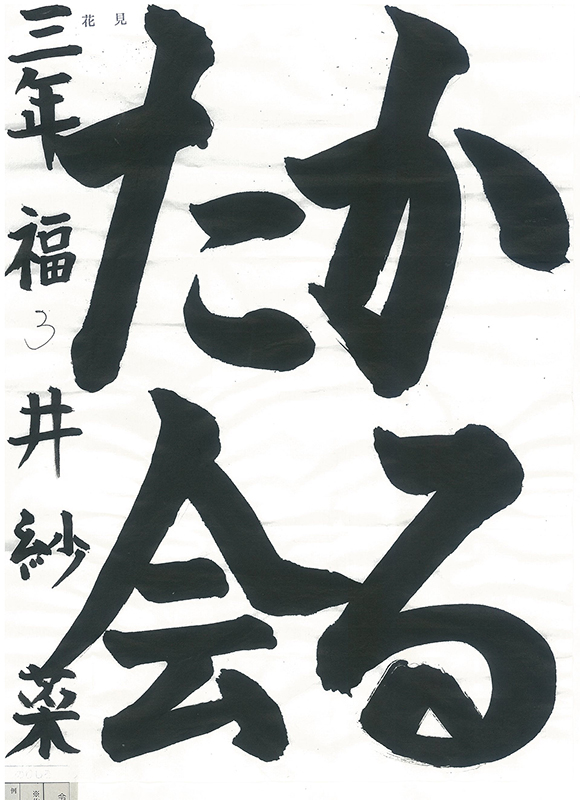 花見
かる
た会
三年 福井紗菜
3
例